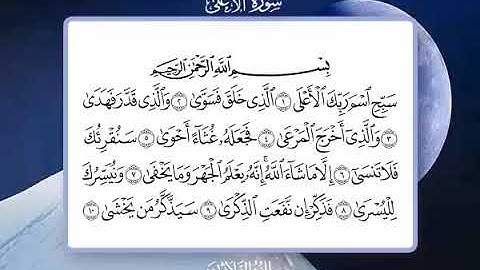 سورة الأعلى
بِسْمِ ٱللَّهِ ٱلرَّحْمَٰنِ ٱلرَّحِيمِ
سَبِّحِ ٱسْمَ رَبِّكَ ٱلْأَعْلَى ١ ٱلَّذِى خَلَقَ فَسَوَّىٰ ٢ وَٱلَّذِى قَدَّرَ فَهَدَىٰ
٣ وَٱلَّذِىٓ أَخْرَجَ ٱلْمَرْعَىٰ ٤ فَجَعَلَهُۥ غُثَآءً أَحْوَىٰ ٥ سَنُقْرِئُكَ
فَلَا تَنسَىٰٓ ٦ إِلَّا مَا شَآءَ ٱللَّهُ إِنَّهُۥ يَعْلَمُ ٱلْجَهْرَ وَمَا يَخْفَىٰ ٧ وَنُيَسِّرُكَ
لِلْيُسْرَىٰ ٨ فَذَكِّرْ إِن نَّفَعَتِ ٱلذِّكْرَىٰ ٩ سَيَذَّكَّرُ مَن يَخْشَىٰ ١٠